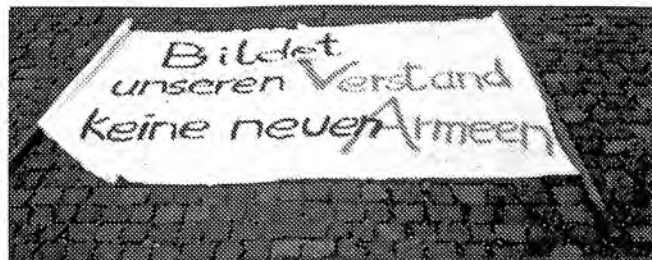 Bildet
unseren Verstand
keine neuen Armeen